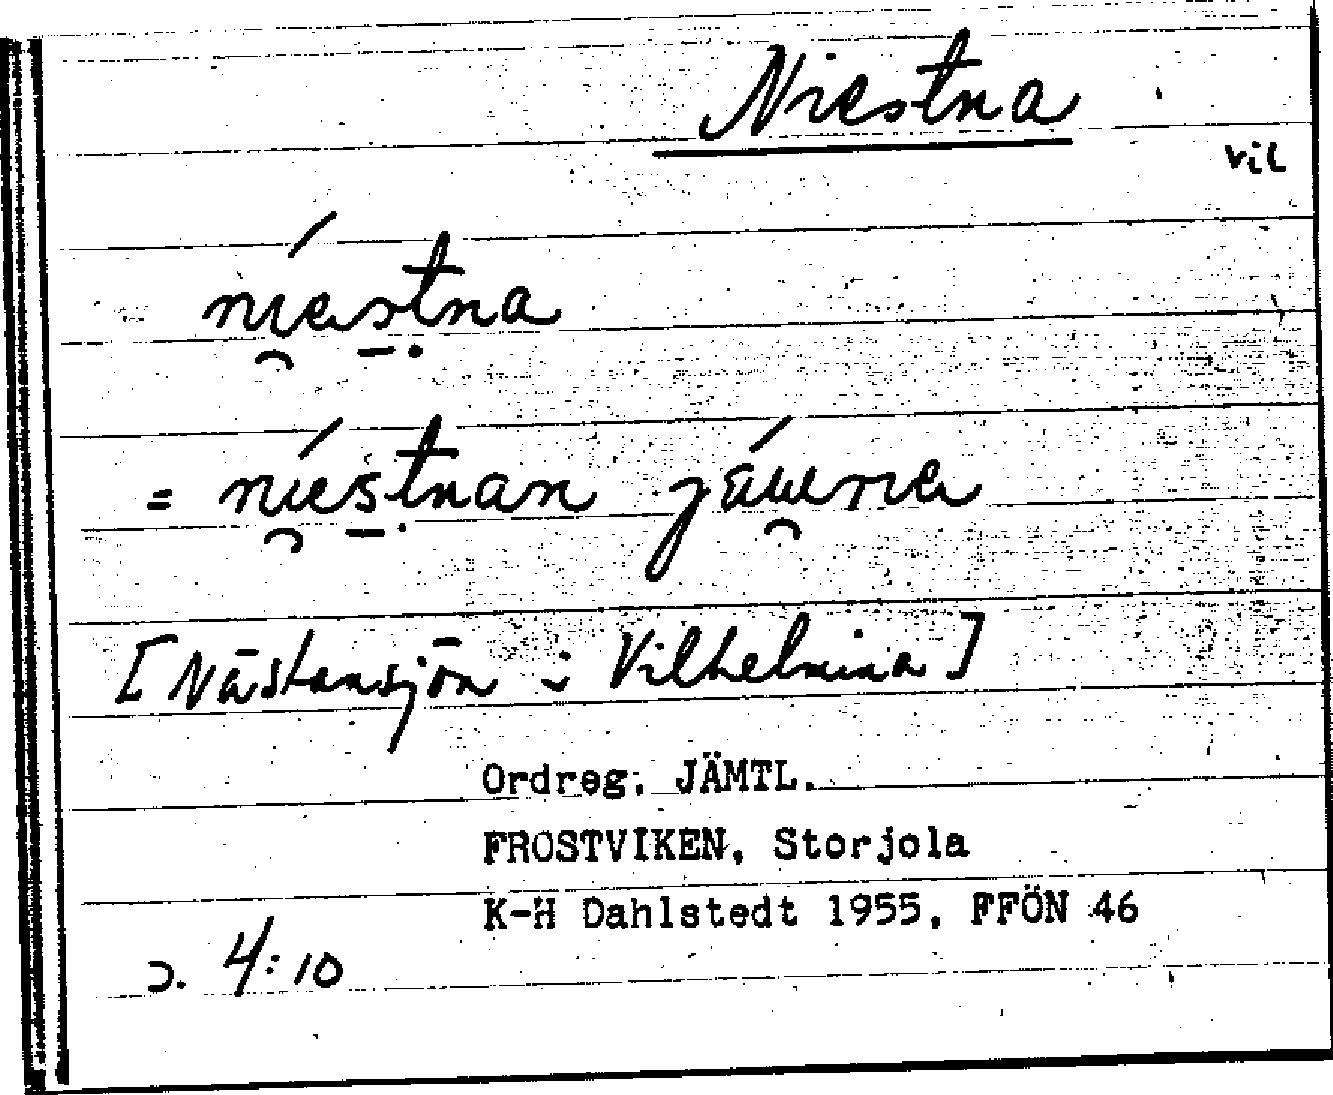 Niestna
vil
níestna
= níestnan jáuvrie
[Nästansjön i Vilhelmina]
Ordreg: JÄMTL.
FROSTVIKEN, Storjola
K-H Dahlstedt 1955, FFÖN 46
4:10